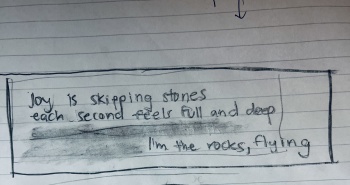 Joy is skipping stones
each second feels full and deep
I'm the rocks, flying